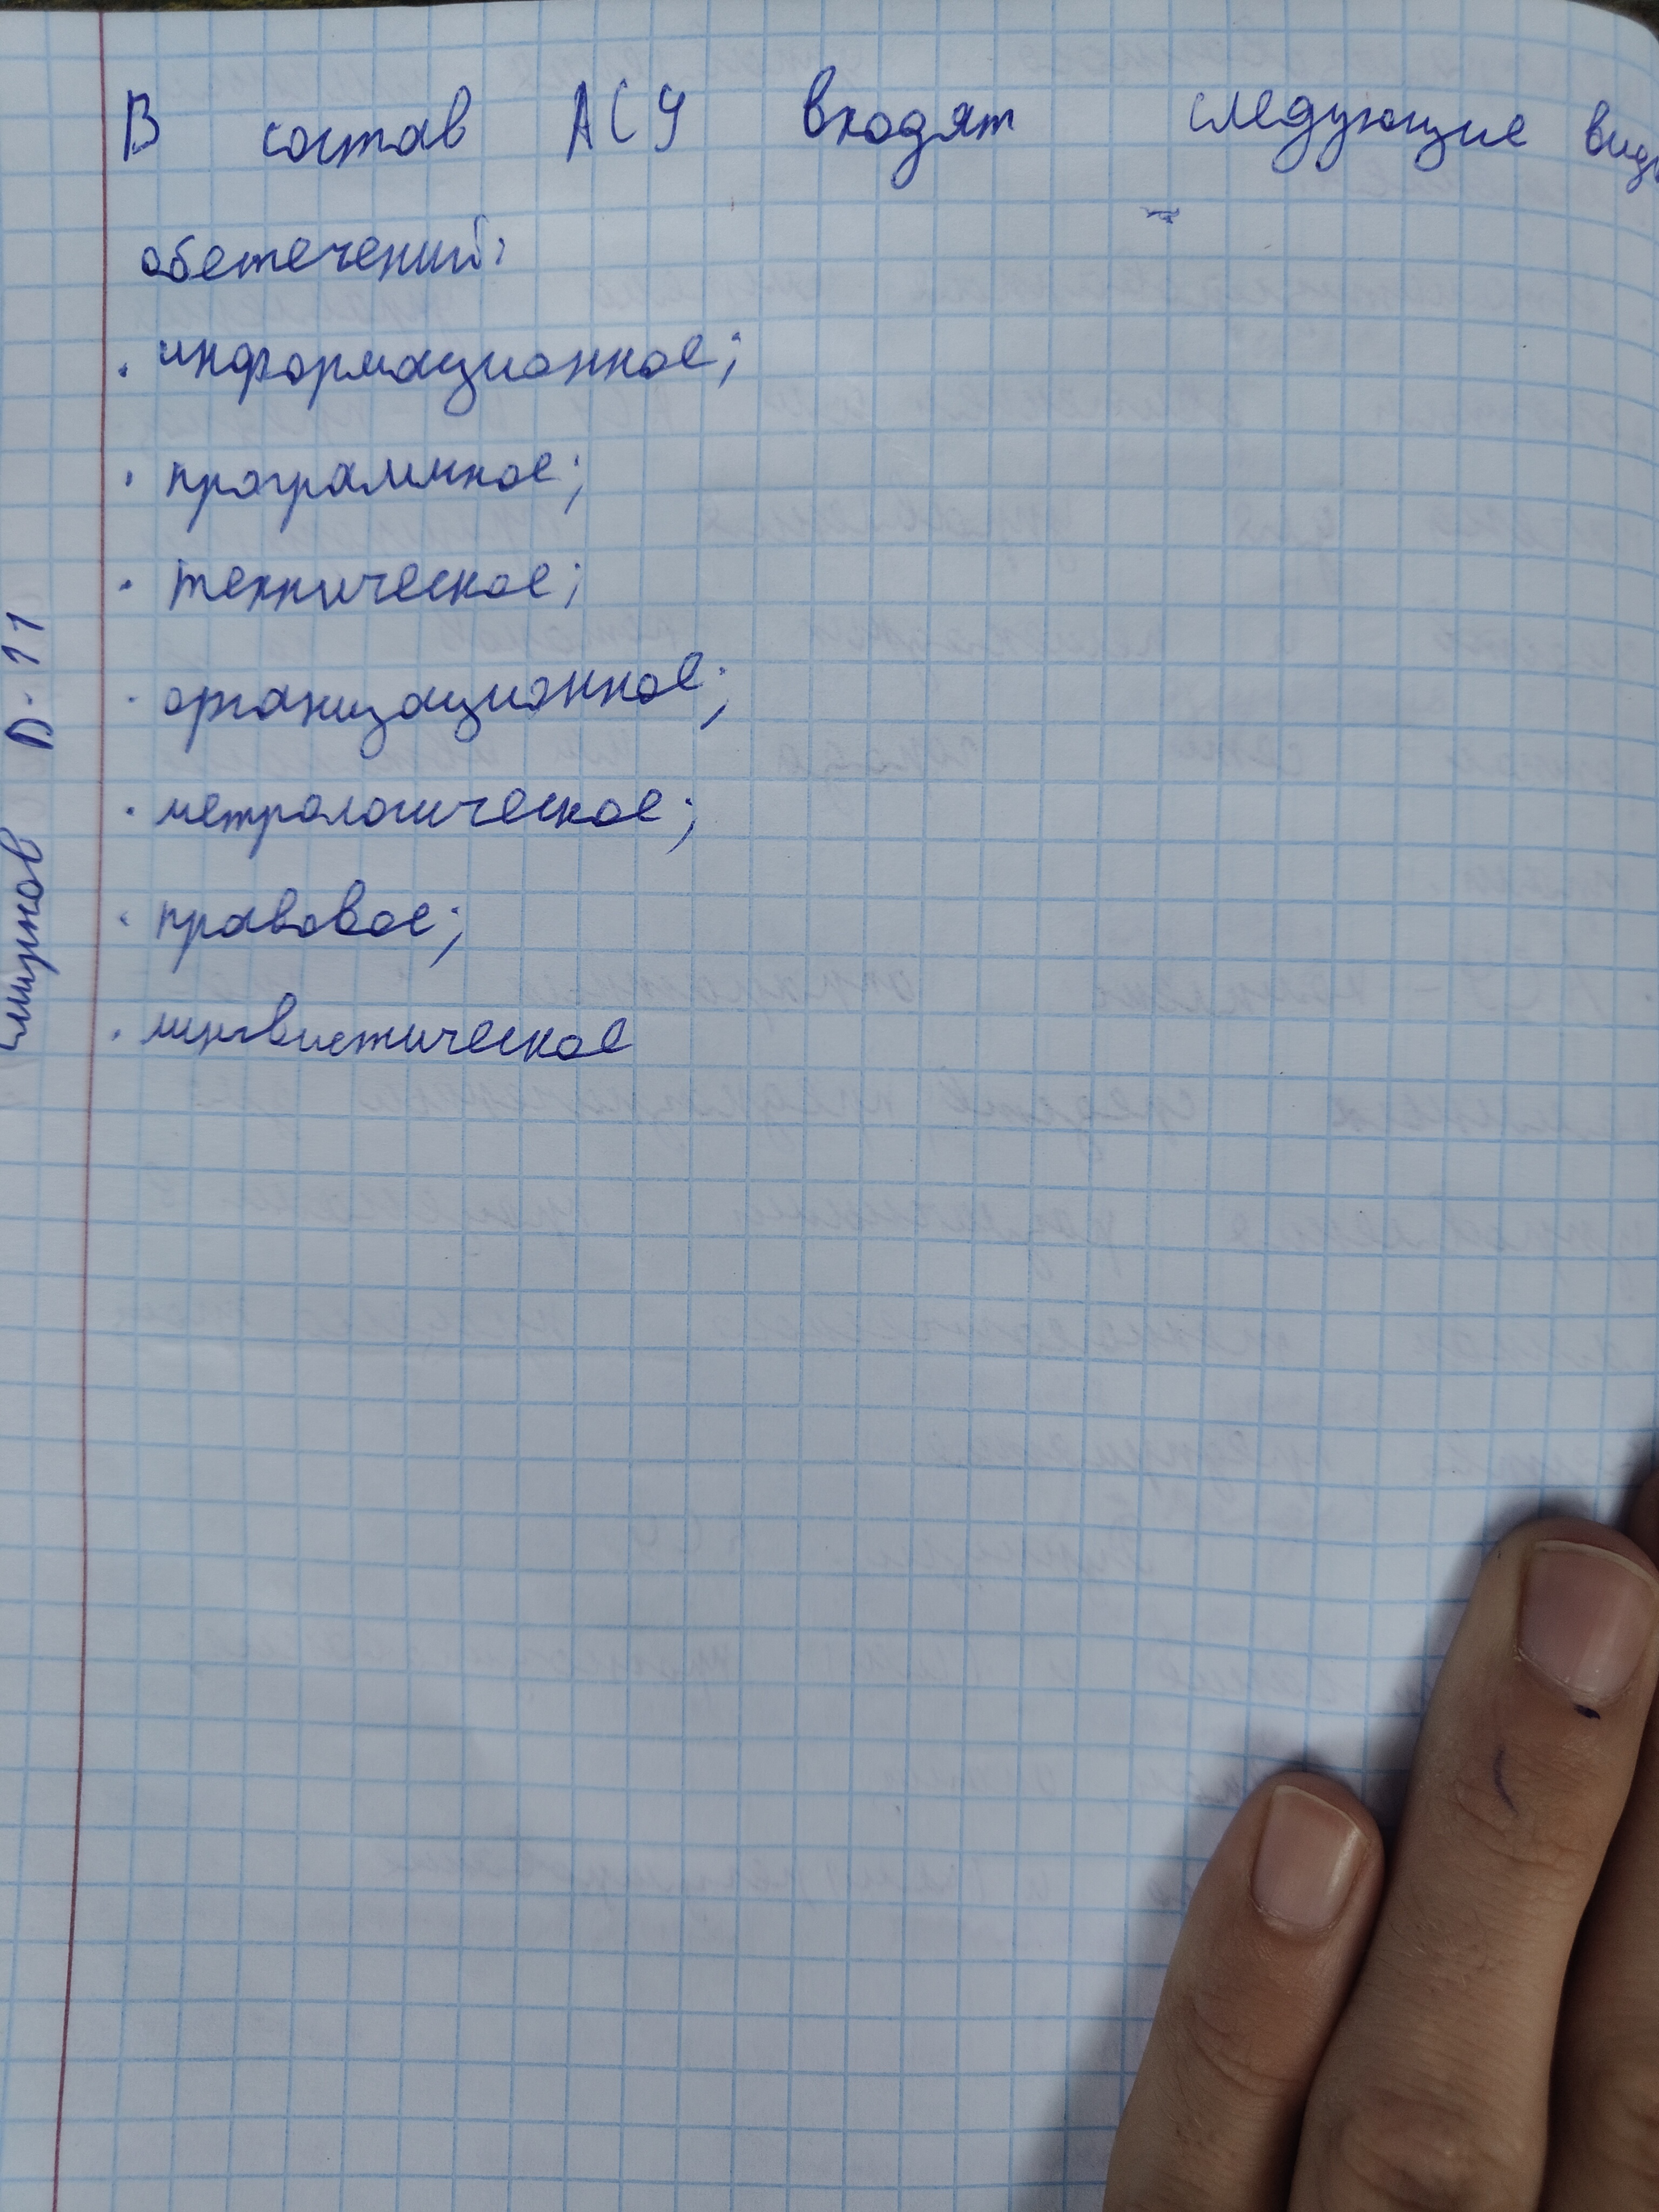 В состав АСУ входят следующие виды
обетечений:
· информационное;
· программное;
· техническое;
· организационное;
· метрологическое;
· правовое;
· лингвистическое
D-11